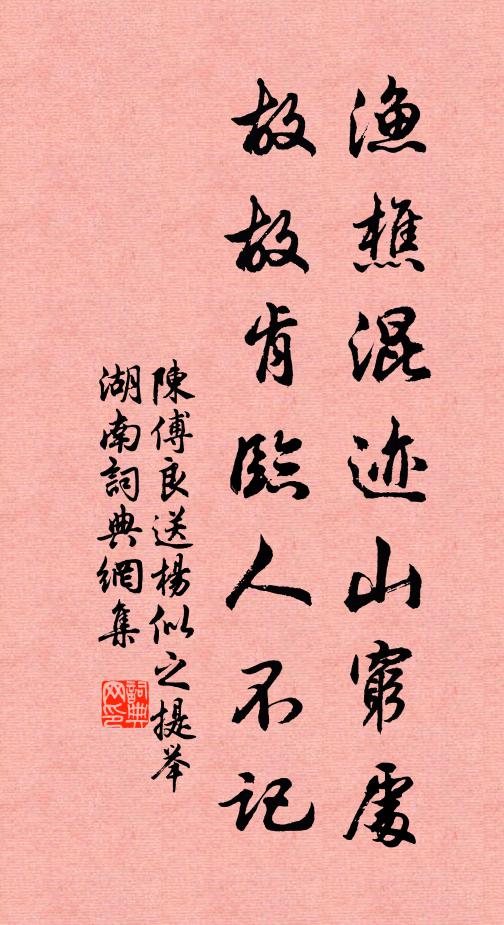 漁樵混迹山窮處
故故肯臨人不記
陳傅良送楊似之提举
湖南詞典網集
詞典网印